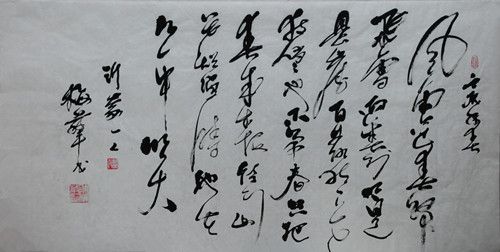 风雨送春归
飞雪迎春到已是
悬崖百丈冰犹有花
枝俏俏也不争春只把
春来报待到山
花烂漫时她在
丛中笑
沂蒙